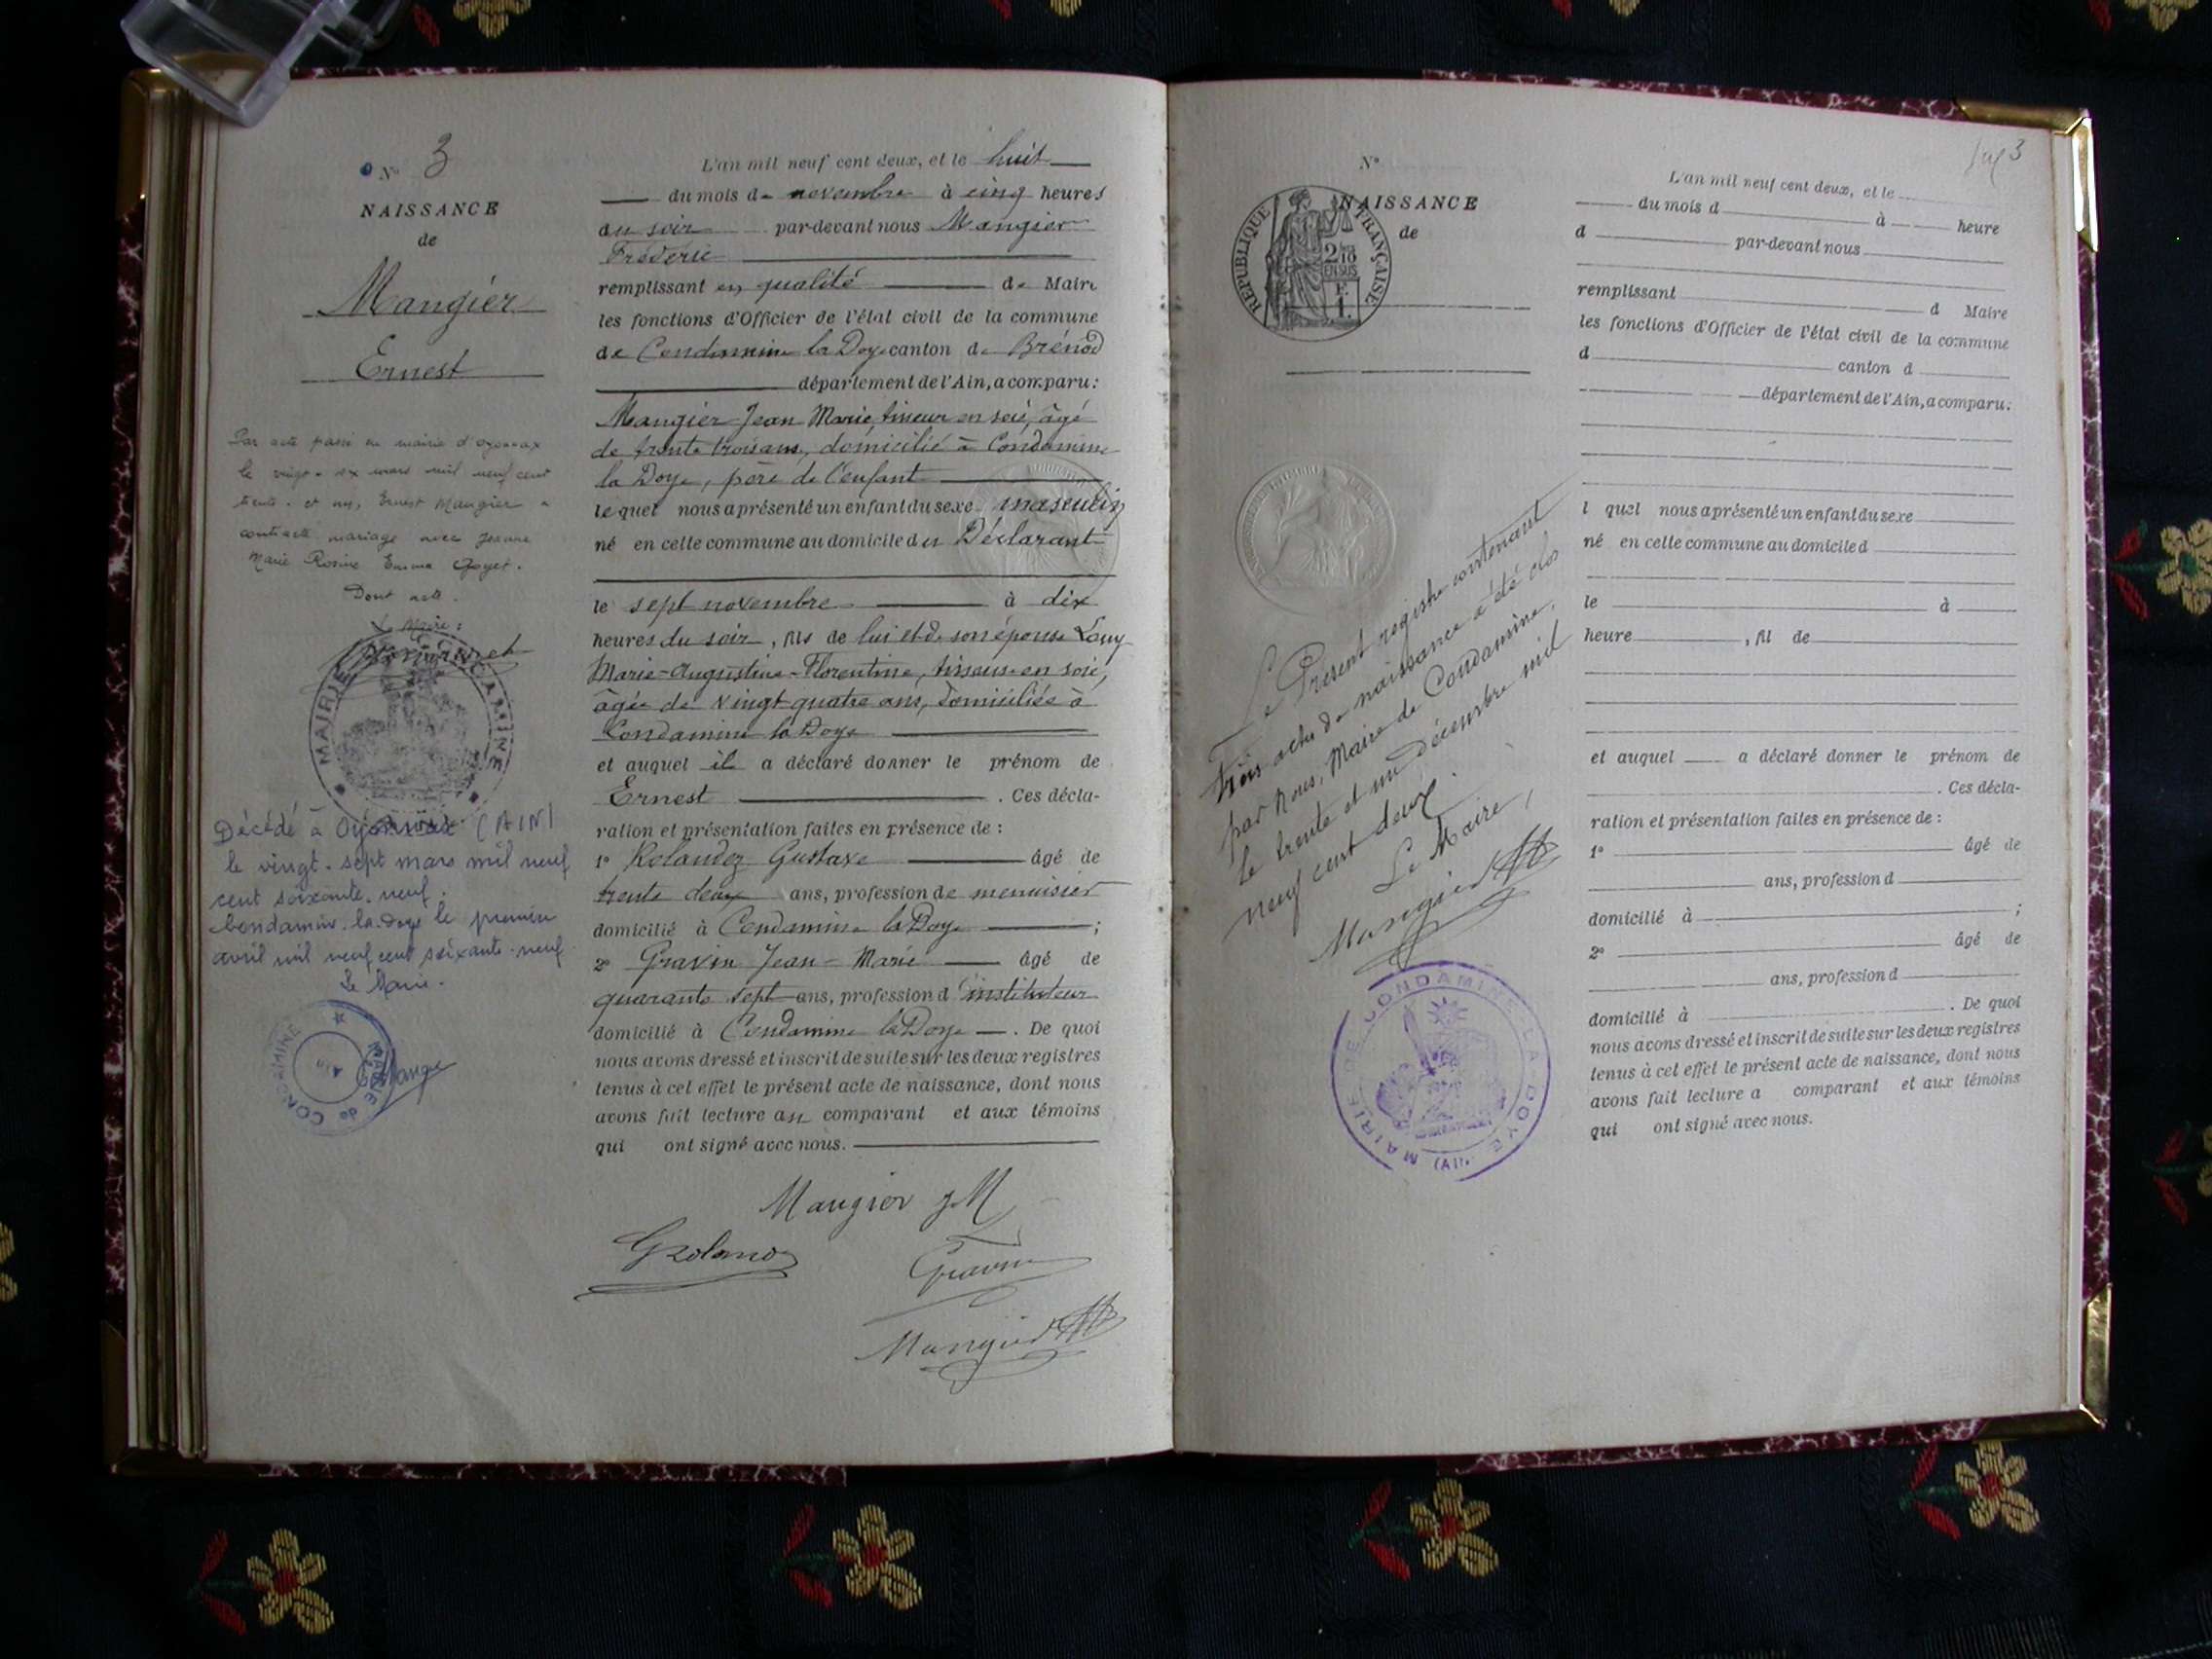 N° 3
NAISSANCE
de
Mangier
Ernest
Par acte passé en mairie d'Oyonnax
le vingt-six mars mil neuf cent
trente et un, Ernest Mangier a
contracté mariage avec Jeanne
Marie Rosine Emma Goyet.
Dont acte.
Le Maire :
MAIRIE CONDAMINE
Décédé à Oyonnax (AIN)
le vingt-sept mars mil neuf
cent soixante-neuf.
Condamine-la-Doye le premier
avril mil neuf cent soixante-neuf
Le Maire.
MAIRIE de CONDAMINE
Ain
L'an mil neuf cent deux, et le huit
du mois de novembre à cinq heures
du soir par-devant nous Mangier
Fréderic
remplissant en qualité de Maire
les fonctions d'Officier de l'état civil de la commune
de Condamine la Doye canton de Brénod
département de l'Ain, a comparu :
Mangier Jean Marie, tisseur en soie, âgé
de trente trois ans, domicilié à Condamine
la Doye, père de l'enfant
lequel nous a présenté un enfant du sexe masculin
né en cette commune au domicile du Déclarant
le sept novembre à dix
heures du soir, fils de lui et de son épouse Louy
Marie-Augustine-Florentine, tisseuse en soie,
âgée de vingt-quatre ans, domiciliée à
Condamine la Doye
et auquel il a déclaré donner le prénom de
Ernest . Ces décla-
ration et présentation faites en présence de :
1° Rolandez Gustave âgé de
trente deux ans, profession de menuisier
domicilié à Condamine la Doye ;
2° Gravin Jean-Marie âgé de
quarante sept ans, profession d'instituteur
domicilié à Condamine la Doye . De quoi
nous avons dressé et inscrit de suite sur les deux registres
tenus à cet effet le présent acte de naissance, dont nous
avons fait lecture au comparant et aux témoins
qui ont signé avec nous.
Mangier JM
Gravin
Mangier
N°
NAISSANCE
de
REPUBLIQUE FRANÇAISE
2/10
EN SUS
F.
1.
Le Présent registre contenant
trois actes de naissance a été clos
par Nous, Maire de Condamine,
le trente et un décembre mil
neuf cent deux.
Le Maire,
Mangier
MAIRIE DE CONDAMINE LA DOYE
(Ain)
3
L'an mil neuf cent deux, et le
du mois d à heure
d par-devant nous
remplissant d Maire
les fonctions d'Officier de l'état civil de la commune
d canton d
département de l'Ain, a comparu :
l quel nous a présenté un enfant du sexe
né en cette commune au domicile d
le à
heure , fil de
et auquel a déclaré donner le prénom de
. Ces décla-
ration et présentation faites en présence de :
1° âgé de
ans, profession d
domicilié à ;
2° âgé de
ans, profession d
domicilié à . De quoi
nous avons dressé et inscrit de suite sur les deux registres
tenus à cet effet le présent acte de naissance, dont nous
avons fait lecture a comparant et aux témoins
qui ont signé avec nous.